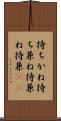 待ちかね待
ち兼ね待兼
ね待兼